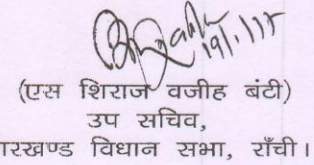 19/1/17
(एस शिराज वजीह बंटी)
उप सचिव,
ारखण्ड विधान सभा, राँची।